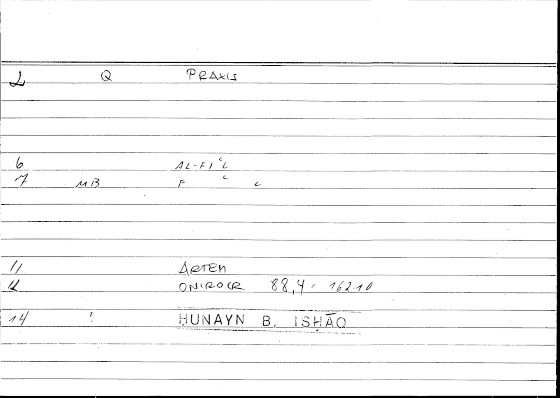 2 Q PRAXIS
6 AL-FIʿL
7 MB F ʿ L
11 ARTEM
12 ONIROCR 88,4 162.10
14 ? ḤUNAYN B. ISḤĀQ